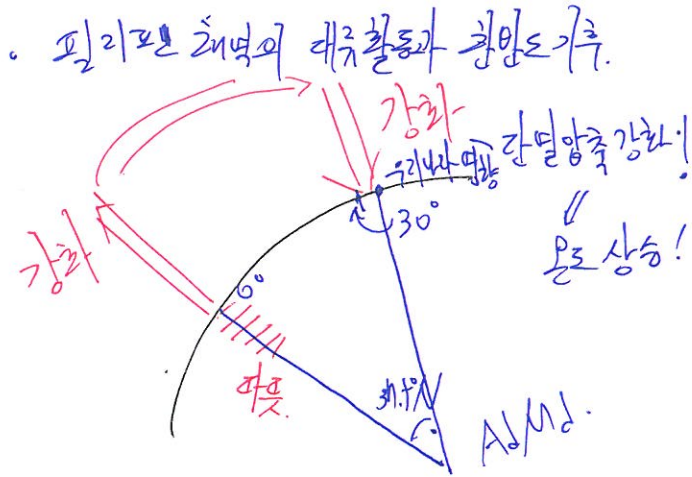 · 필리핀 해역의 대류활동과 한반도 기후.
강화
우리나라 영향
단열압축강화!
⇓
30°
온도 상승!
강화
0°
따뜻.
37.5°N